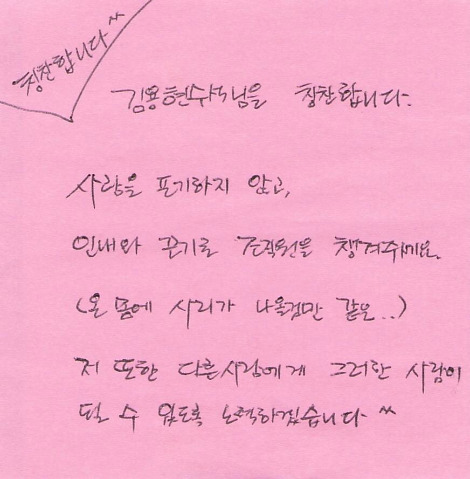 칭찬합니다^^
김용현수녀님을 칭찬합니다.
사람을 포기하지 않고,
인내와 끈기로 조직원을 챙겨줘요.
(온 몸에 사리가 나올것만 같은..)
저 또한 다른사람에게 그러한 사람이
될 수 있도록 노력하겠습니다^^